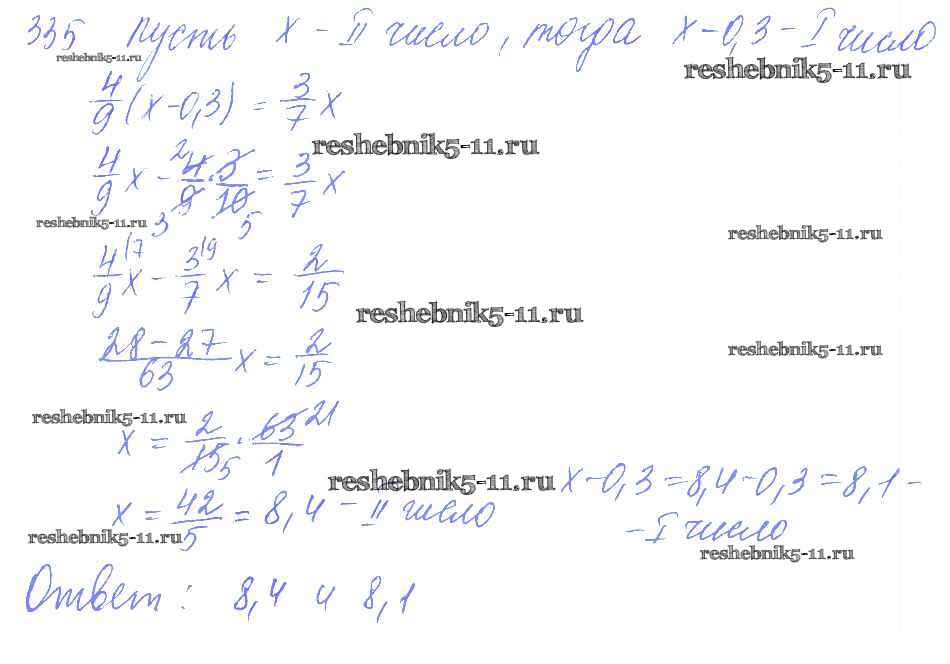 335 Пусть x - II число, тогда x-0,3 - I число
reshebnik5-11.ru
reshebnik5-11.ru
4/9 (x-0,3) = 3/7 x
reshebnik5-11.ru
4/9 x - 4/9 · 3/10 = 3/7 x
2
3 5
reshebnik5-11.ru
reshebnik5-11.ru
4/9 \7 x - 3/7 \9 x = 2/15
reshebnik5-11.ru
28-27/63 x = 2/15
reshebnik5-11.ru
reshebnik5-11.ru
x = 2/15 · 63/1
21
5
reshebnik5-11.ru
x-0,3 = 8,4-0,3 = 8,1 -
x = 42/5 = 8,4 - II число
- I число
reshebnik5-11.ru
reshebnik5-11.ru
Ответ: 8,4 и 8,1